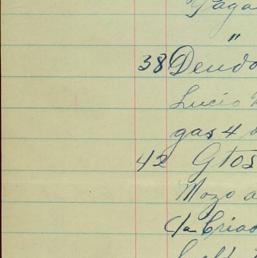 Paga
"
38 Deudo
Lucio
gas 4
42 Gtos
Mozo a
C/a Criad